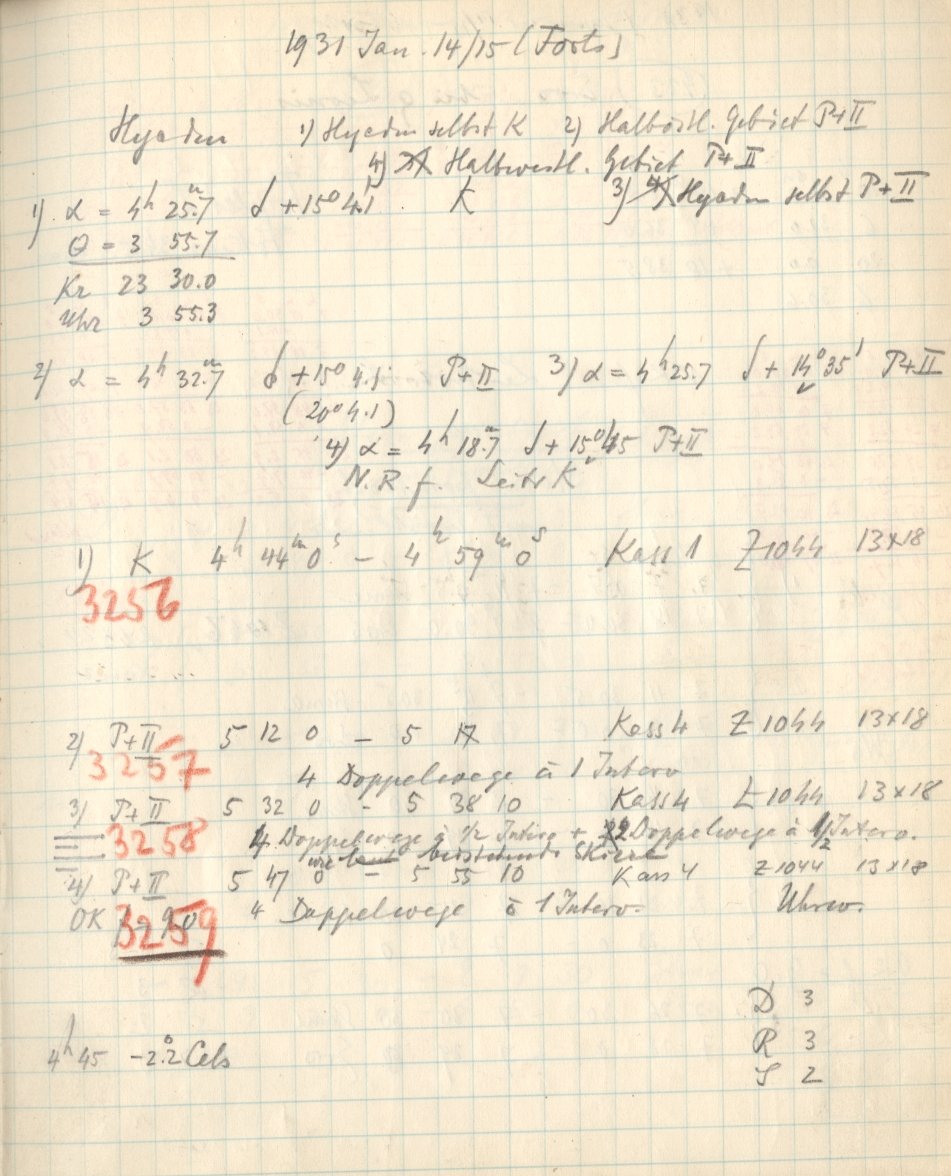 1931 Jan. 14/15 (Forts)
Hyaden 1) Hyaden selbst K 2) Halböstl. Gebiet P+II
4) Halbwestl. Gebiet P+II
1) α = 4h 25.m7 δ +15° 4.1 K 3) Hyaden selbst P+II
θ = 3 55.7
Kr 23 30.0
Uhr 3 55.3
2) α = 4h 32.m7 δ +15° 4.1 P+II 3) α = 4h 25.7 δ + 14° 35' P+II
(20° 4.1)
4) α = 4h 18.m7 δ + 15° 45 P+II
N. R. f. Seite K
1) K 4h 44m 0s – 4h 59m 0s Kass 1 Z 1044 13x18
3256
2) P+II 5 12 0 – 5 17 Kass 4 Z 1044 13x18
3257
4 Doppelwege à 1 Interv
3) P+II 5 32 0 – 5 38 10 Kass 4 Z 1044 13x18
3258 4 Doppelwege à 1/2 Interv + 2 Doppelwege à 1/2 Interv.
beistehende Skizze
4) P+II 5 47 0 – 5 55 10 Kass 4 Z 1044 13x18
OK 3259 4 Doppelwege à 1 Interv. Uhrw.
D 3
R 3
4h 45 –2.°2 Cels
S 2